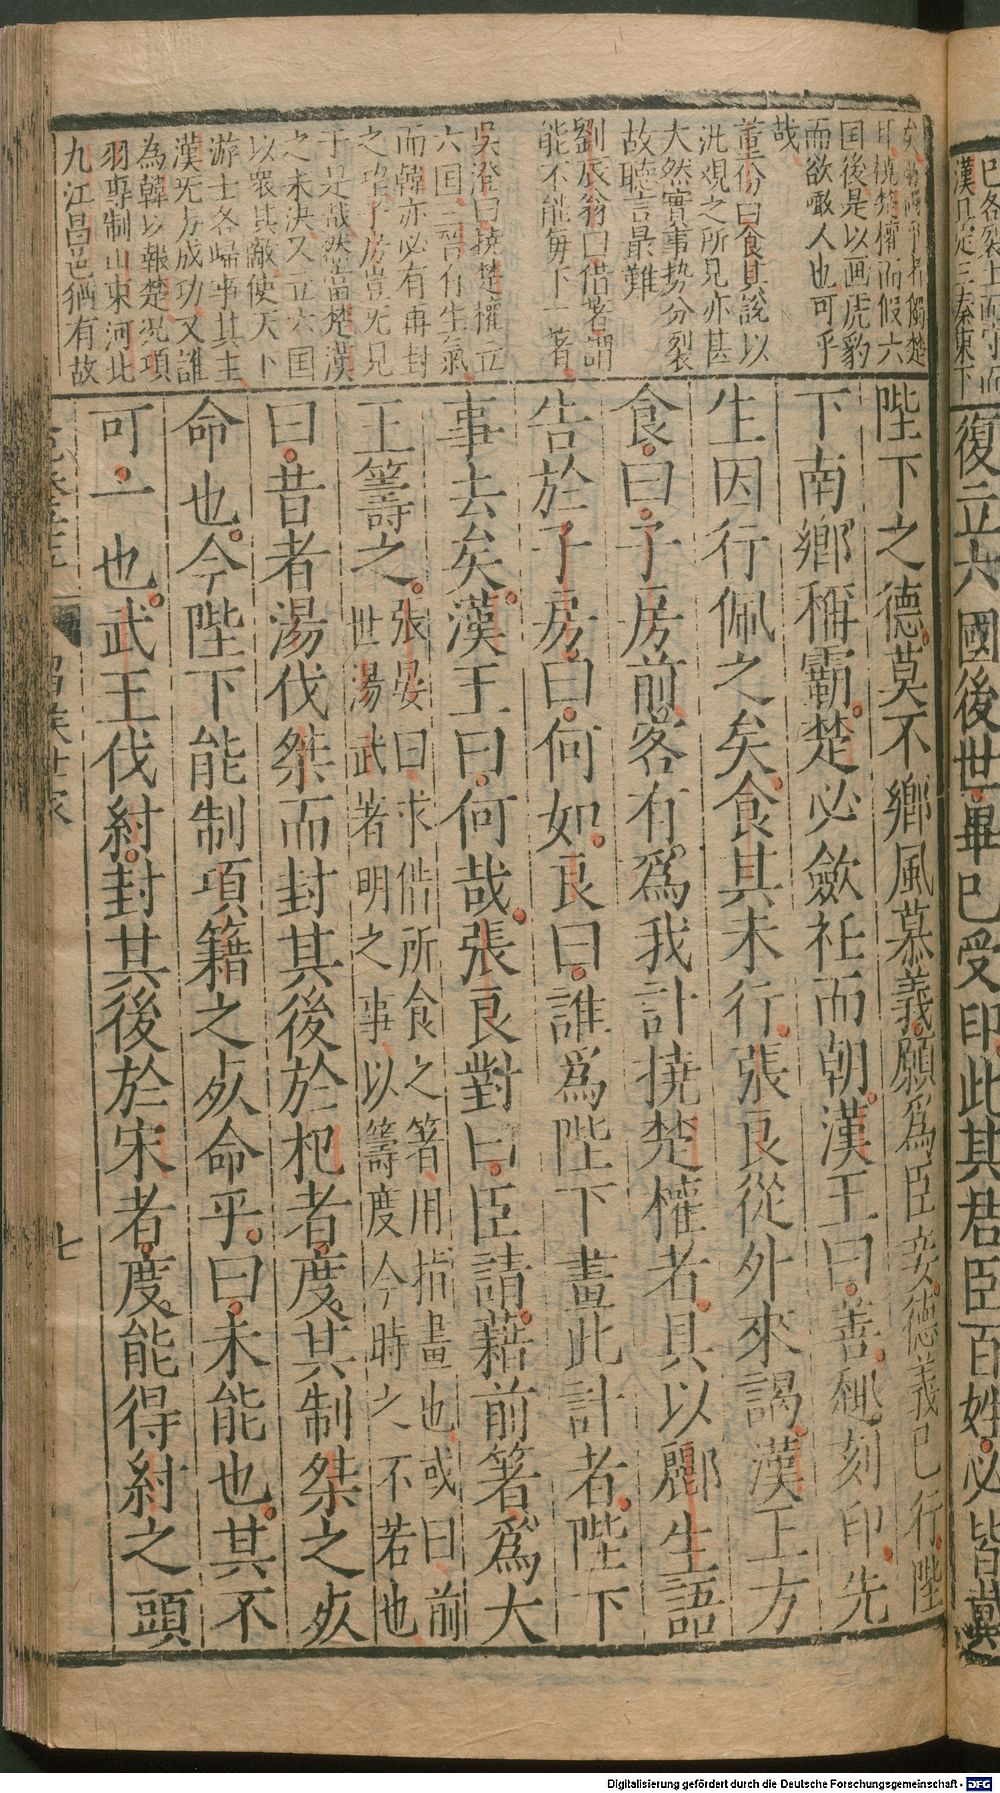 復立六國後世畢已受印此其君臣百姓必皆戴
陛下之德莫不鄉風慕義願爲臣妾德義已行陛
下南鄉稱霸楚必斂衽而朝漢王曰善趣刻印先
生因行佩之矣食其未行張良從外來謁漢王方
食曰子房前客有爲我計撓楚權者具以酈生語
告於子房曰何如良曰誰爲陛下畫此計者陛下
事去矣漢王曰何哉張良對曰臣請藉前箸爲大
王籌之張晏曰求借所食之箸用指畫也或曰前
世湯武著明之事以籌度今時之不若也
曰昔者湯伐桀而封其後於杞者度其制桀之死
命也今陛下能制項籍之死命乎曰未能也其不
可一也武王伐紂封其後於宋者度能得紂之頭
漢且定三秦東下
印撓楚權而假六
国後是以画虎豹
而欲噉人也可乎
哉
董份曰食其說以
汎观之所見亦甚
大然實事势分裂
故聽言最難
劉辰翁曰借著謂
能不能每下一著
吳澄曰撓楚權立
六国三晋有生氣
而韓亦必有再封
之理子房豈旡見
于是哉然當楚漢
之未决又立六国
以衆其敵使天下
游士各歸事其主
漢旡方成功又誰
為韓以報楚况項
羽專制山東河北
九江昌邑猶有故
七
Digitalisierung gefördert durch die Deutsche Forschungsgemeinschaft - DFG